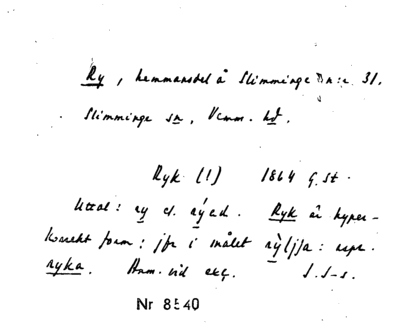 Ry, hemmansdel å Slimminge n:r 31.
Slimminge sn, Vemm. hd.
Ryk (!) 1864 G.St.
Uttal: ry el. rýed. Ryk är hyper-
korrekt form; jfr i målet rỳljsa: rspr.
ryka. Anm. vid exc. I.I-s.
Nr 8540